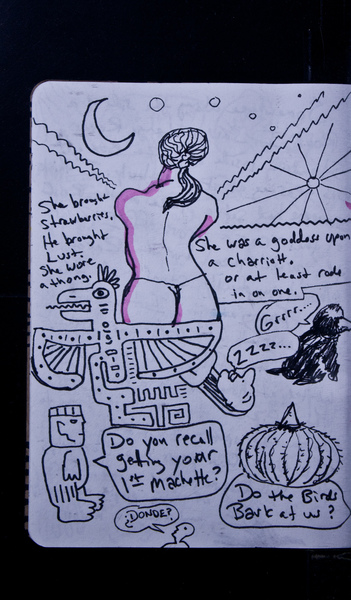 She brought
Strawberries,
He brought
Lust.
She wore
a thong.
She was a goddess upon
a charriott,
or at least rode
in on one.
Grrrr...
ZZZZ...
Do you recall
getting your
1st Machette?
¿DONDE?
Do the Birds
Bark at us?